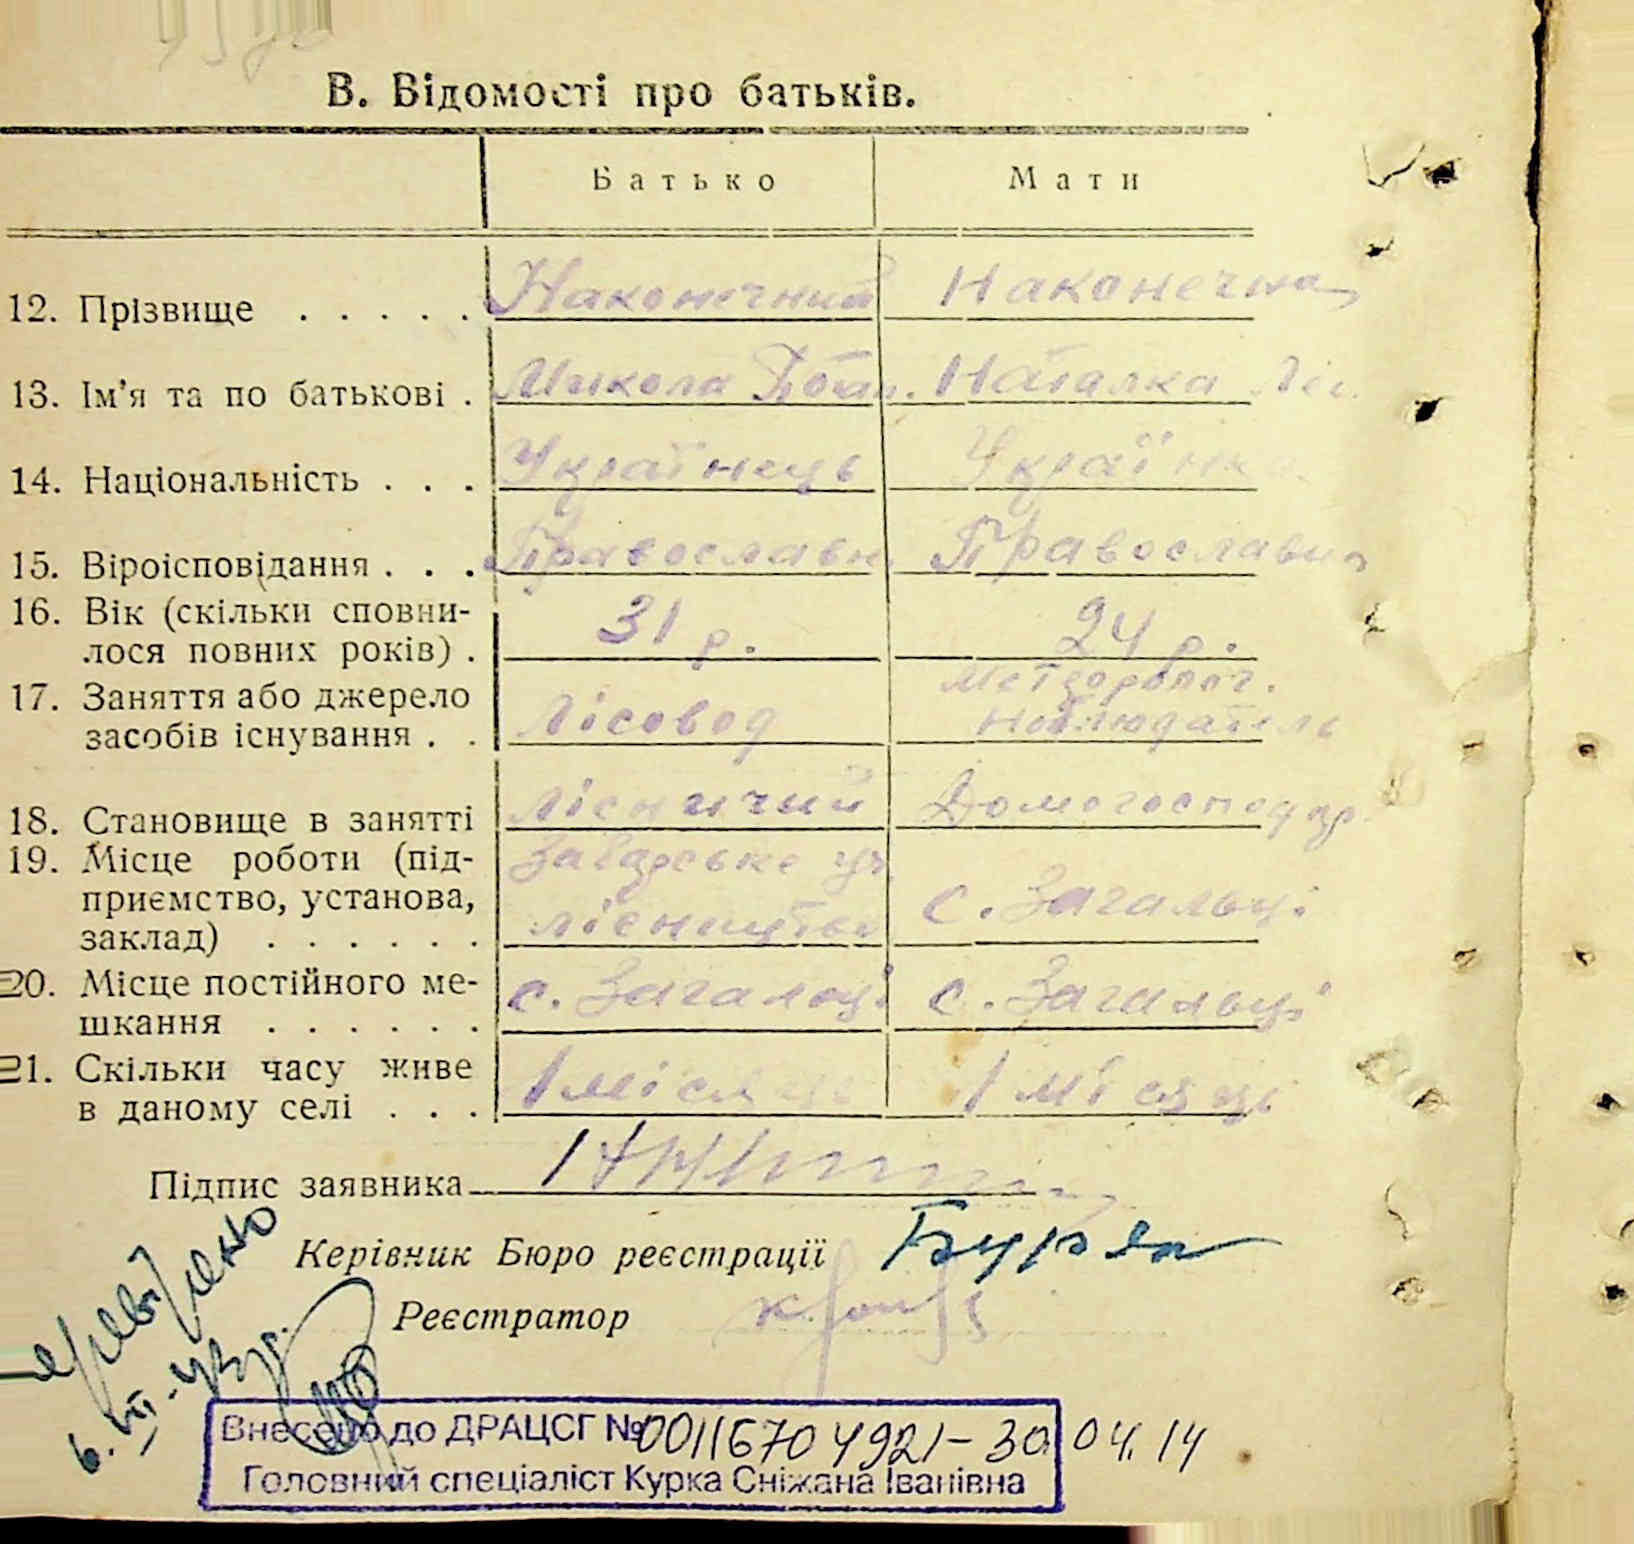 В. Відомості про батьків.
Батько Мати
12. Прізвище . . . . . Наконечний Наконечна
13. Ім’я та по батькові . Микола Наталка
14. Національність . . . Українець Українка
15. Віроісповідання . . . Православн. Православна
16. Вік (скільки сповни-
лося повних років) . 31 р. 24 р.
17. Заняття або джерело Метеоролог.
засобів існування . . Лісовод наблюдатель
18. Становище в занятті Лісничий Домогосподар.
19. Місце роботи (під-
приємство, установа, с. Загальці
заклад) . . . . . . лісництво
20. Місце постійного ме- с. Загальці с. Загальці
шкання . . . . . .
21. Скільки часу живе
в даному селі . . . 1 місяць 1 місяць
Підпис заявника
Керівник Бюро реєстрації Буряк
Реєстратор
Перевірено
6. VII-43 р.
Внесено до ДРАЦСГ № 00116704921-30.04.14
Головний спеціаліст Курка Сніжана Іванівна